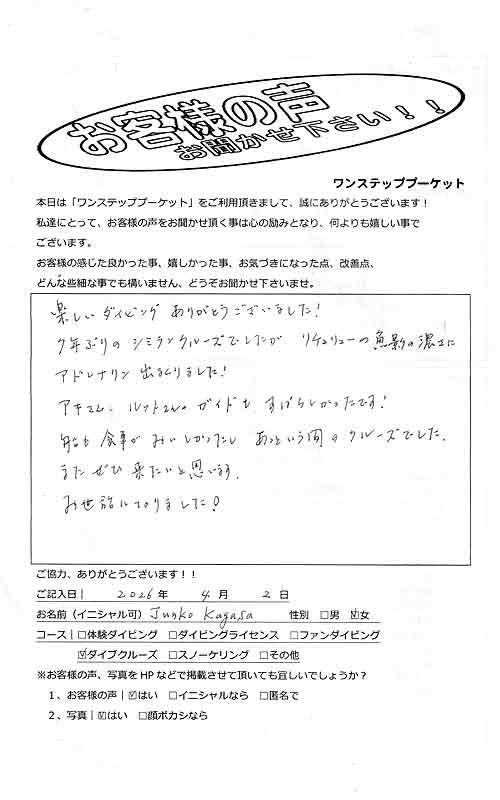 お客様の声
お聞かせ下さい！！
ワンステッププーケット
本日は「ワンステッププーケット」をご利用頂きまして、誠にありがとうございます！
私達にとって、お客様の声をお聞かせ頂く事は心の励みとなり、何よりも嬉しい事で
ございます。
お客様の感じた良かった事、嬉しかった事、お気づきになった点、改善点、
どんな些細な事でも構いません、どうぞお聞かせ下さいませ。
楽しいダイビング ありがとうございました！
7年ぶりの シミランクルーズでしたが リチェリューの魚影の濃さに
アドレナリン 出まくりました！
アキさん、ルットさんの ガイドも すばらしかったです！
船も 食事が おいしかったし あっという間の クルーズでした。
また ぜひ 来たいと思います。
お世話になりました！
ご協力、ありがとうございます！！
ご記入日｜ 2026 年 4 月 2 日
お名前（イニシャル可）Junko Kagasa 性別 □男 ☑女
コース｜□体験ダイビング □ダイビングライセンス □ファンダイビング
☑ダイブクルーズ □スノーケリング □その他
※お客様の声、写真をHPなどで掲載させて頂いても宜しいでしょうか？
1、お客様の声｜☑はい □イニシャルなら □匿名で
2、写真｜☑はい □顔ボカシなら